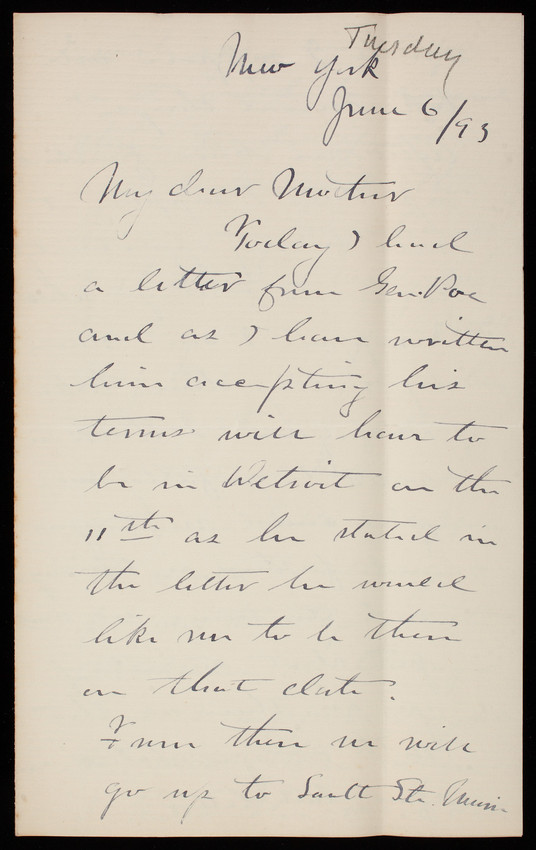 Tuesday
New York
June 6/93
My dear Mother
Today I had
a letter from Gen. Poe
and as I have written
him accepting his
terms will have to
be in Detroit on the
11th as he stated in
the letter he would
like me to be there
on that date.
From there we will
go up to Sault Ste. Marie